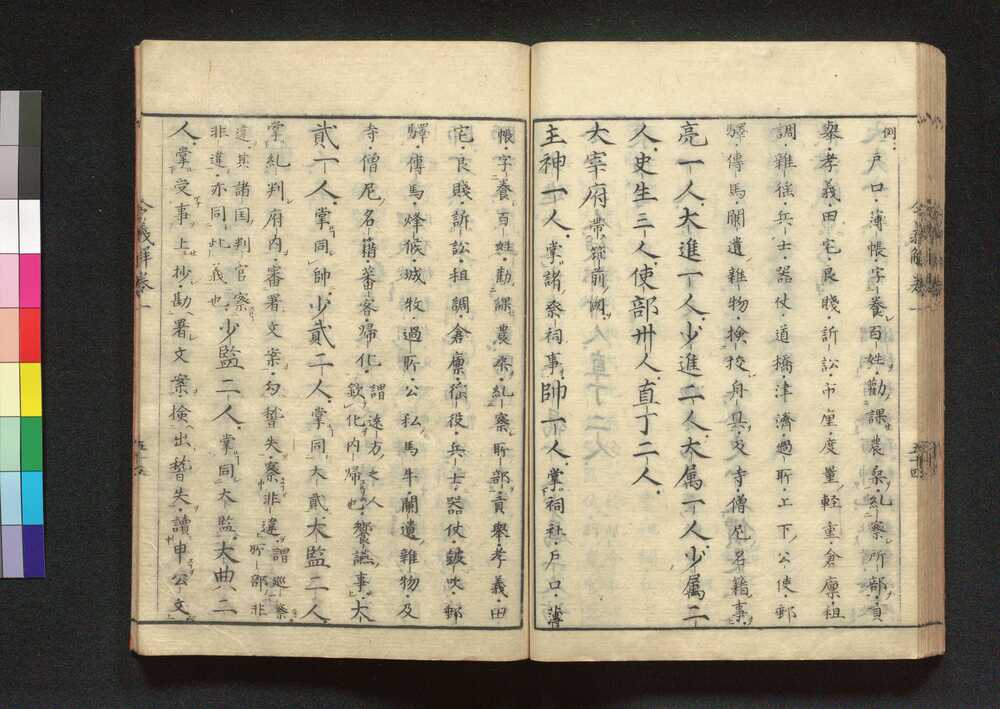 例・戸口・簿帳字養百姓・勧課農桒・糺察所部・貢
挙・孝義・田宅・良賤・訴訟・市厘・度量・軽重・倉廩・租
調・雜徭・兵士・器仗・道橋・津済・過所・上下公使・郵
驛・傳馬・闌遺雜物・撿挍舟具・及寺僧尼名籍事
亮一人・大進一人・少進二人・大属一人・少属二
人・史生三人・使部卅人・直丁二人・
大宰府帶筑前國
主神一人・掌諸祭祠事・帥一人・掌祠社・戸口・簿
帳・字養百姓・勧課農桒・糺察所部・貢舉・孝義・田
宅・良賤・訴訟・租調・倉廩・徭役・兵士・器仗・皷吹・郵
驛・傳馬・烽候・城牧・過所・公私馬牛・闌遺雜物・及
寺・僧尼名籍・蕃客・歸化・謂遠方之人欽化内歸也・饗讌事・大
貳一人・掌同帥・少貳二人・掌同大貳・大監二人・
掌糺判府内・審署文案・勾誓失・察非違・謂巡察所部非
違・其諸国判官察非違・亦同此義也・少監二人・掌同大監・大典二
人・掌受事上抄・勘署文案・撿出誓失・讀申公文
令義解巻一
五十四
令義解巻一
五十五